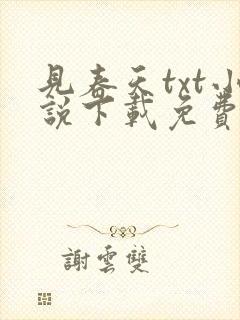 見春天txt小
說下載免費
謝雲雙